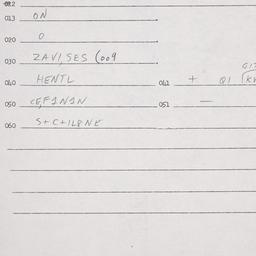 012
013 ON
020 0
030 ZAVI,SES (009
040 HENTL 041 + QI
050 CE,F1N1N 051 —
060 S+C+IL8NE